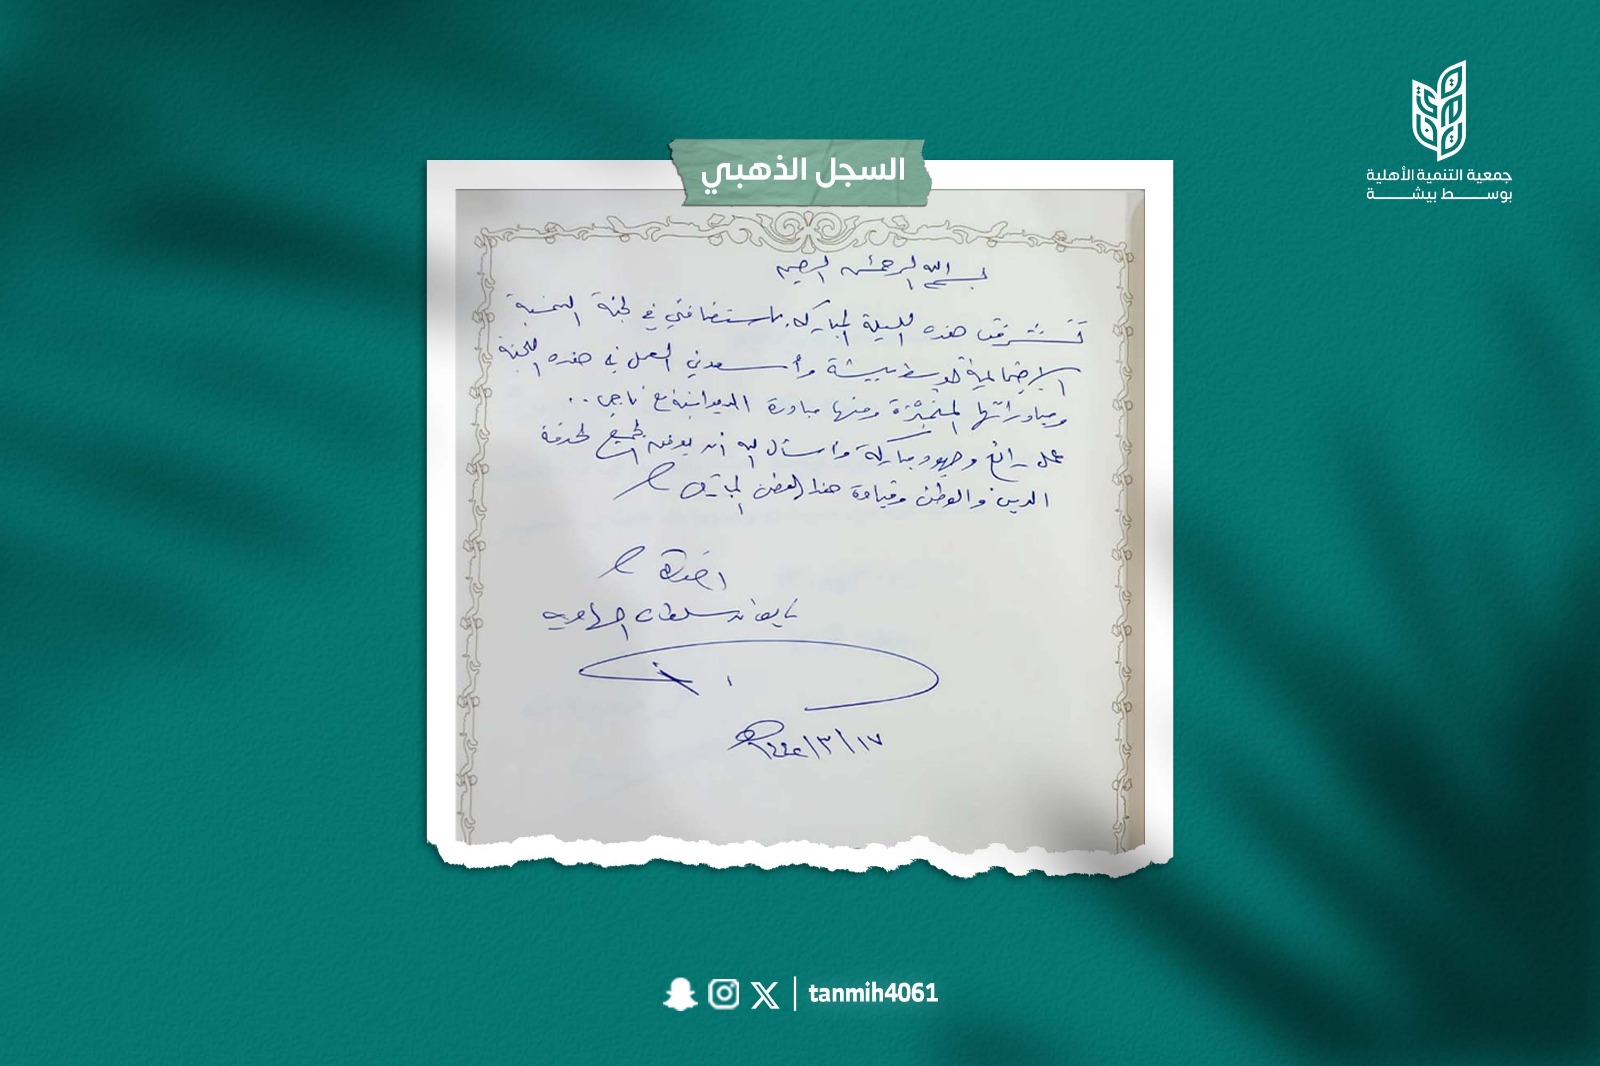 جمعية التنمية الأهلية
بوسط بيشة
السجل الذهبي
بسم الله الرحمن الرحيم
تشرفت هذه الليلة المباركة باستضافتي في لجنة التنمية
الاجتماعية بوسط بيشة وأسعدني العمل في هذه اللجنة
ومبادراتها المتميزة ومنها مبادرة الديوانية مع ناجي ..
عمل رائع وجهود مباركة وأسأل الله أن يوفق الجميع لخدمة
الدين والوطن وقيادة هذا الوطن
نايف بن سلطان
١٧/٣/
tanmih4061